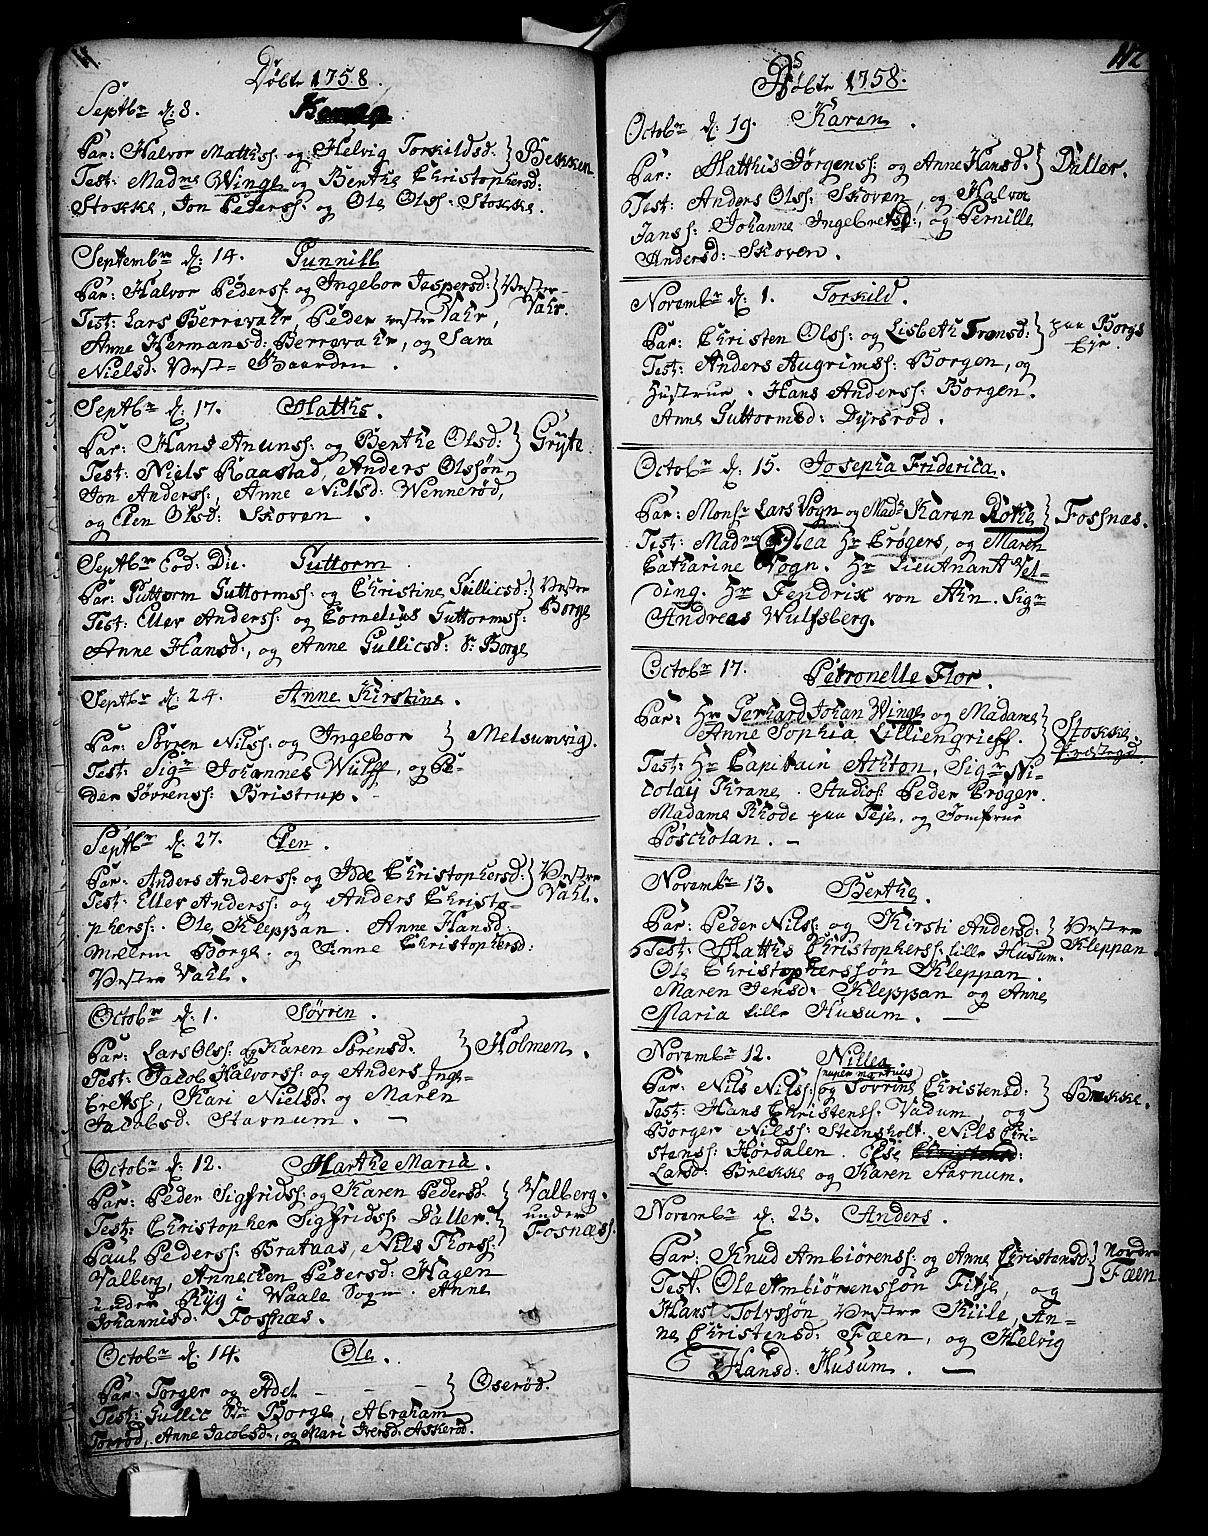 Døbte 1758.
Septbr d: 8.
Par: Halvor Matthss: og Helvig Torkildsd: } Bekken
Test: Madme Winge og Berthe Christophersd:
Stokke, Jon Pederss: og Ole Olss: Stokke.
Septembr d: 14. Gunnill
Par: Halvor Pederss: og Ingebor Jespersd: } Vestre-
Test: Lars Berrevahr, Peder vestre Vahr, Vahr.
Anne Hermansd: Berrevahr, og Sara
Nielsd: Vest- Gaarden.
Septbr d: 17. Matths.
Par: Hans Anunss: og Berthe Olsd: } Gryte.
Test: Niels Raastad, Anders Olssøn,
Jon Anderss:, Anne Nilsd: Wennerød,
og Elen Olsd: Skoven.
Septbr Eod: Die. Guttorm
Par: Guttorm Guttormss: og Christine Gullicsd: } Vestre
Test: Ellev Anderss: og Cornelius Guttormss: Borge
Anne Hansd:, og Anne Gullicsd: Sr Borge
Septbr d: 24. Anne Kirstine.
Par: Søvren Nilss: og Ingebor } Melsumvig.
Test: Sigr Johannes Wulff, og Pe-
der Søvrenss: Bristrup.
Septbr d: 27. Elen.
Par: Anders Anderss: og Idde Christophersd: } Vestre
Test: Ellev Anderss: og Anders Christo- Vahl.
pherss: Ole Kleppan. Anne Hansd:
mellem Borge. og Anne Christophersd:
Vestre Vahl.
Octobr d: 1. Søvren.
Par: Lars Olss: og Karen Sørensd: } Holmen.
Test: Jacob Halvorss: og Anders Inge-
bretss:, Kari Nielsd: og Maren
Jacobsd: Stavnum. —
Octobr d: 12. Marthe Maria.
Par: Peder Sigfridss: og Karen Pedersd: } Valberg.
Test: Christopher Sigfridss: Daller. under
Paul Pederss: Brataas, Nils Thorss: Fossnæs.
Valberg, Annecken Pedersd: Hagen
under Ryg i Waale Sogn. Anne
Johannisd: Fossnæs.
Octobr d: 14. Ole.
Par: Torger og Adel - - - } Oserød.
Test: Gullic Sdr Borge, Abraham
Torrød, Anne Jacobsd:, og Mari Iversd: Askerød.
112
Døbte 1758.
Octobr d: 19. Karen.
Par: Matthis Jørgenss: og Anne Hansd: } Daller.
Test: Anders Olss: Skoven, og Halvor
Janss: Johanne Ingebretsd:, og Pernille
Andersd: Skoven.
Novembr d: 1. Torkild.
Par: Christen Olss: og Lisbeth Tronsd: } paa Borge
Test: Anders Augrimss: Borgen, og Eye.
Hustrue. Hans Anderss: Borgen.
Anne Guttormsd: Dyrsrød.
Octobr d: 15. Josepha Friderica.
Par: Monsr Lars Vogn og Made Karen Rothe } Fossnæs.
Test: Madme Olea Hr Crøgers, og Maren
Catharine Vogn. Hr Lieutnant Vel-
ding. Hr Fendrix von Ahn. Sigr
Andreas Wulfsberg.
Octobr 17. Petronelle Flor.
Par: Hr Gerhard Johan Winge og Madame } Stokke.
Anne Sophia Lilliengrieff. Prestegd.
Test: Hr Capitain Achton, Sigr Ni-
colay Krane. Studios: Peder Crøger.
Madame Rhode paa Teje, og Jomfrue
Poscholan. —
Novembr 13. Berthe.
Par: Peder Nilss: og Kirsti Andersd: } Vestre
Test: Matthis Christopherss: lille Husum. Kleppan
Ole Christopherssøn Kleppan.
Maren Jensd: Kleppan og Anne
Maria lille Husum. —
Novembr 12. Nilles
(nuper mortuus)
Par: Nils Nilss: og Søvrine Christensd: } Brekke.
Test: Hans Christenss: Vadum, og
Borger Nilss: Steensholt. Nils Chri-
stenss: Hørdalen. Else
Larsd: Brekke og Karen Aarnum.
Novembr d. 23. Anders.
Par: Knud Ambiørenss: og Anne Christensd: } Nordre
Test: Ole Ambiørenssøn Fitje, og Fæen
Hans Tolvssøn Vestre Kiile, An-
ne Christensd: Fæen, og Helvig
Hansd: Husum. —